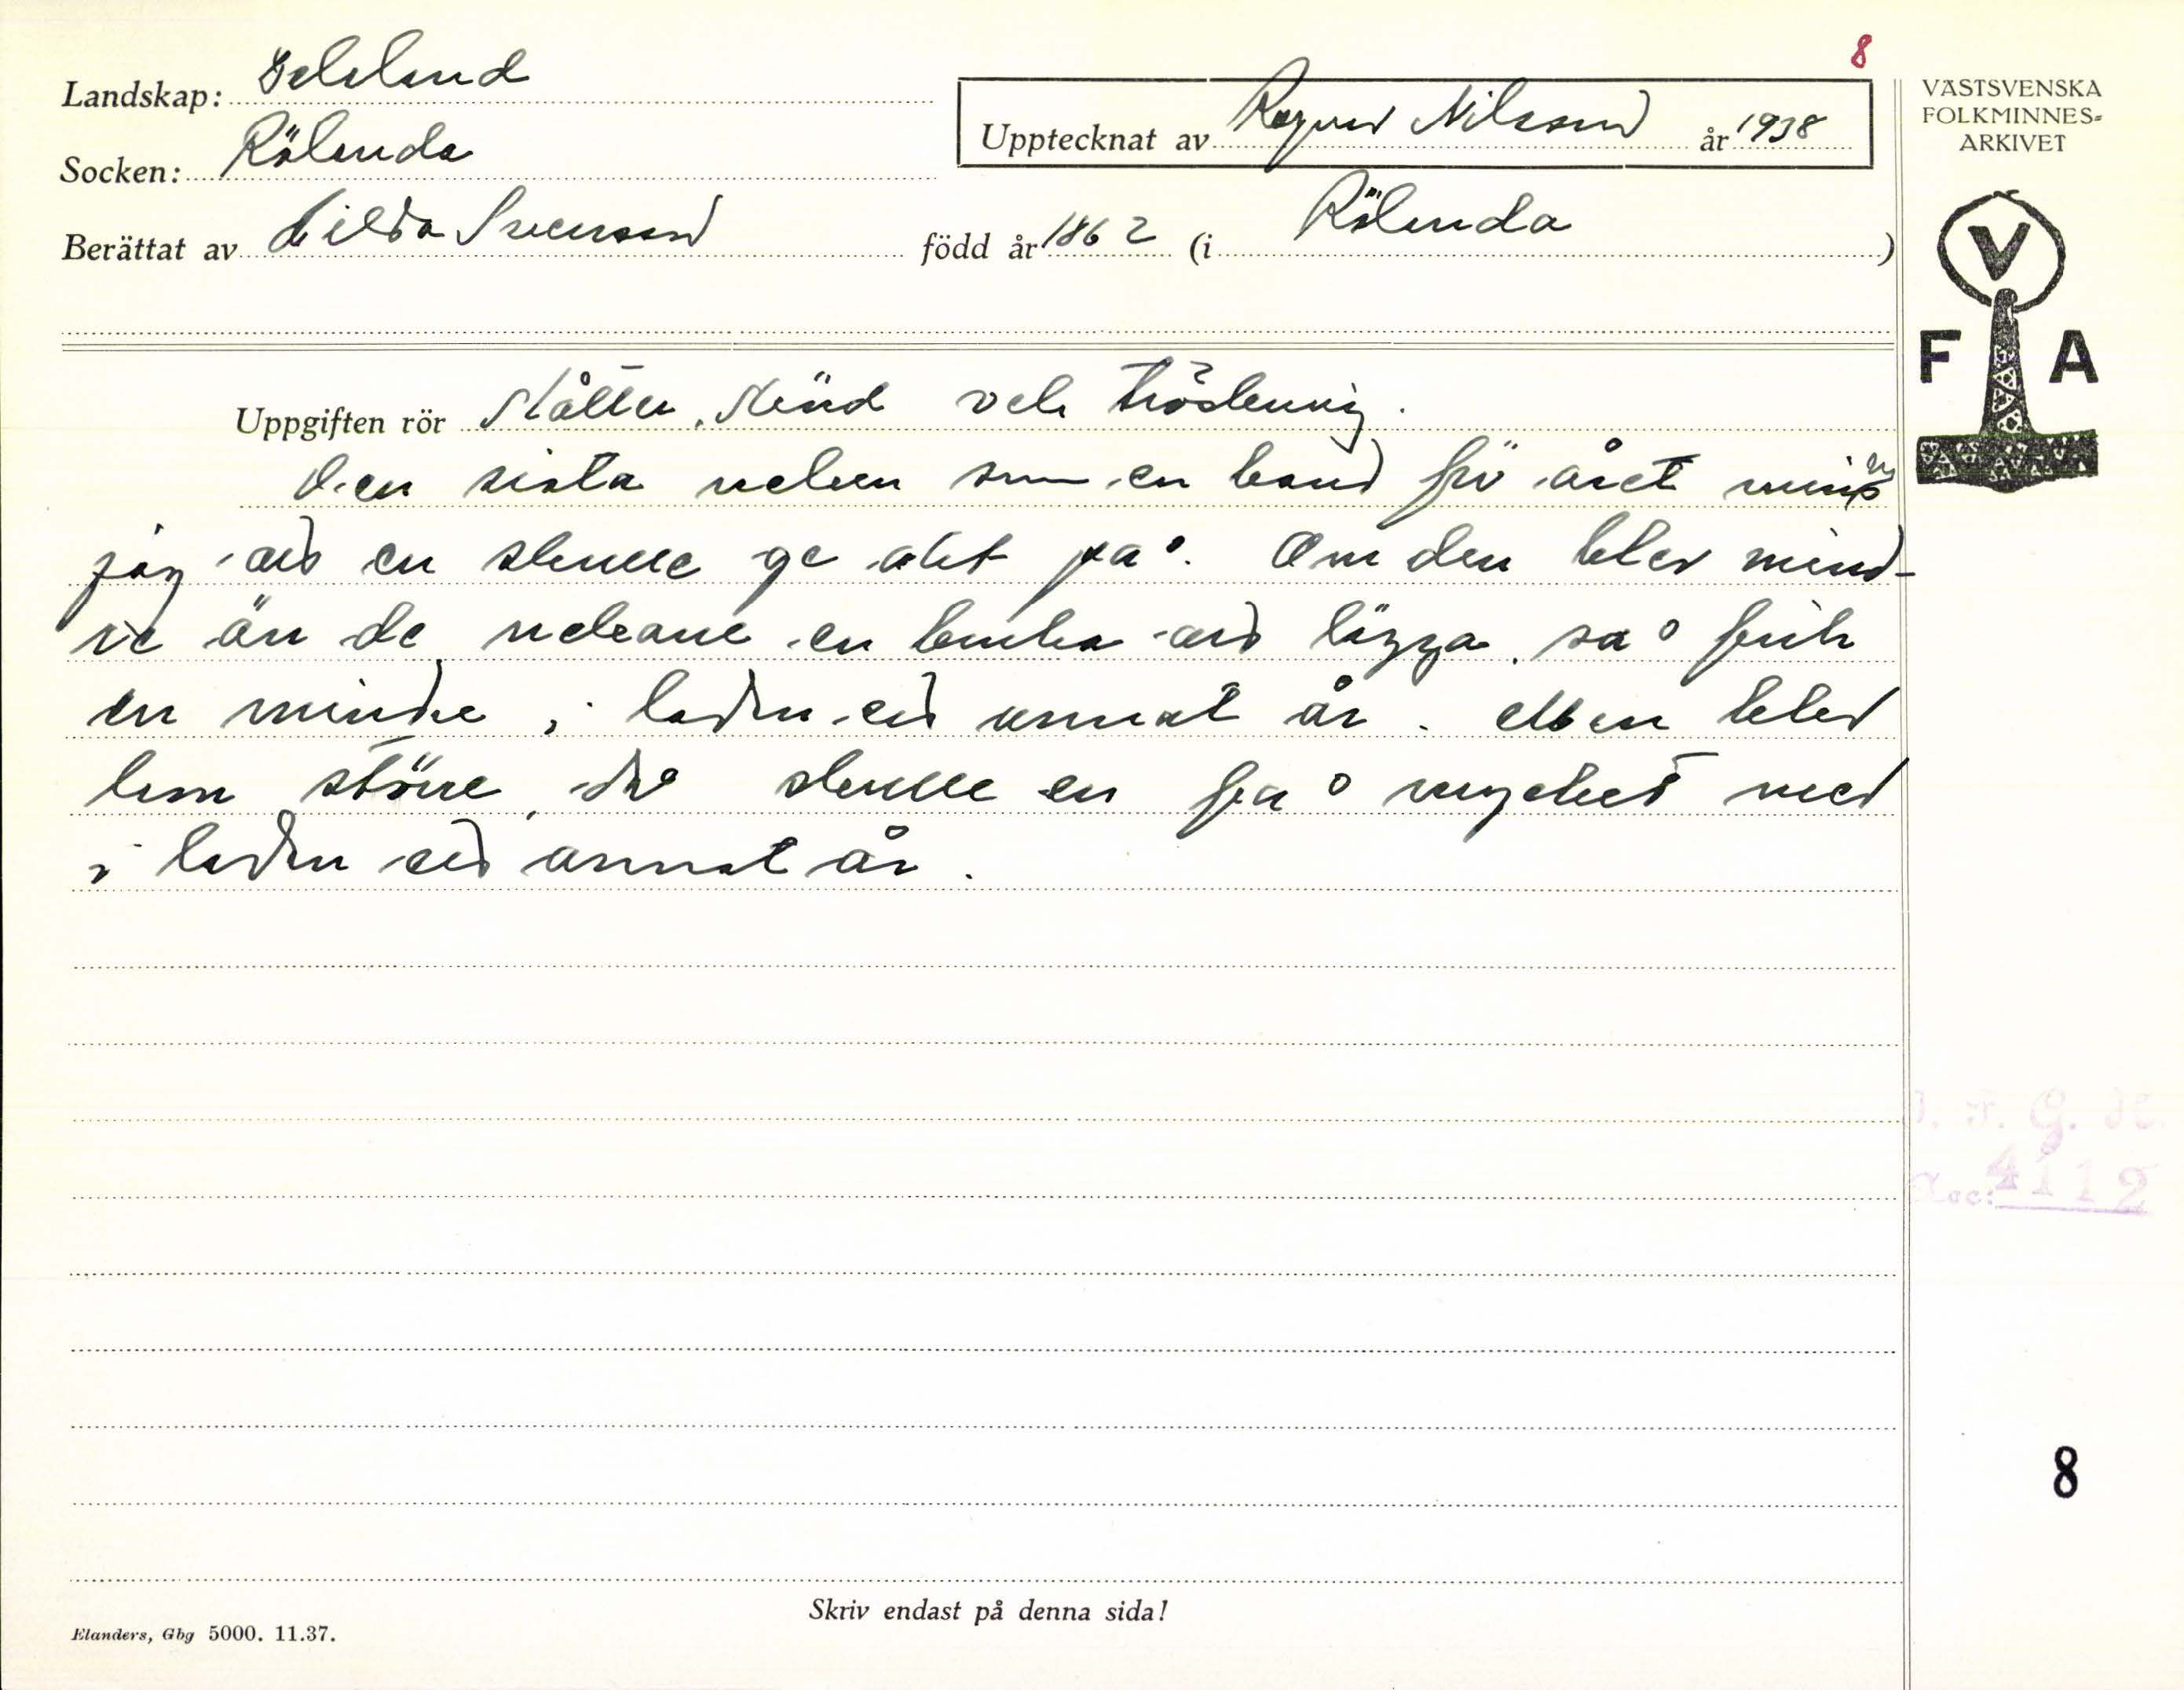 8
Landskap: Dalsland
Socken: Rölanda
Berättat av Hilda Svensson
Upptecknat av Ragnar Nilsson år 1938
född år 1862 (i Rölanda)
VÄSTSVENSKA
FOLKMINNES-
ARKIVET
V
F A
Uppgiften rör Slåtter, skörd och tröskning.
Den sista neken som en band för året minns
jag att en skulle ge akt på. Om den blev mind-
re än de nekane en bruka att lägga, så fick
en mindre i ladan ett annat år. Men blev
hem större, då skulle en få mycket mer
i ladan ett annat år.
I. F. G. H.
Acc: 4112
8
Skriv endast på denna sida!
Elanders, Gbg 5000. 11.37.